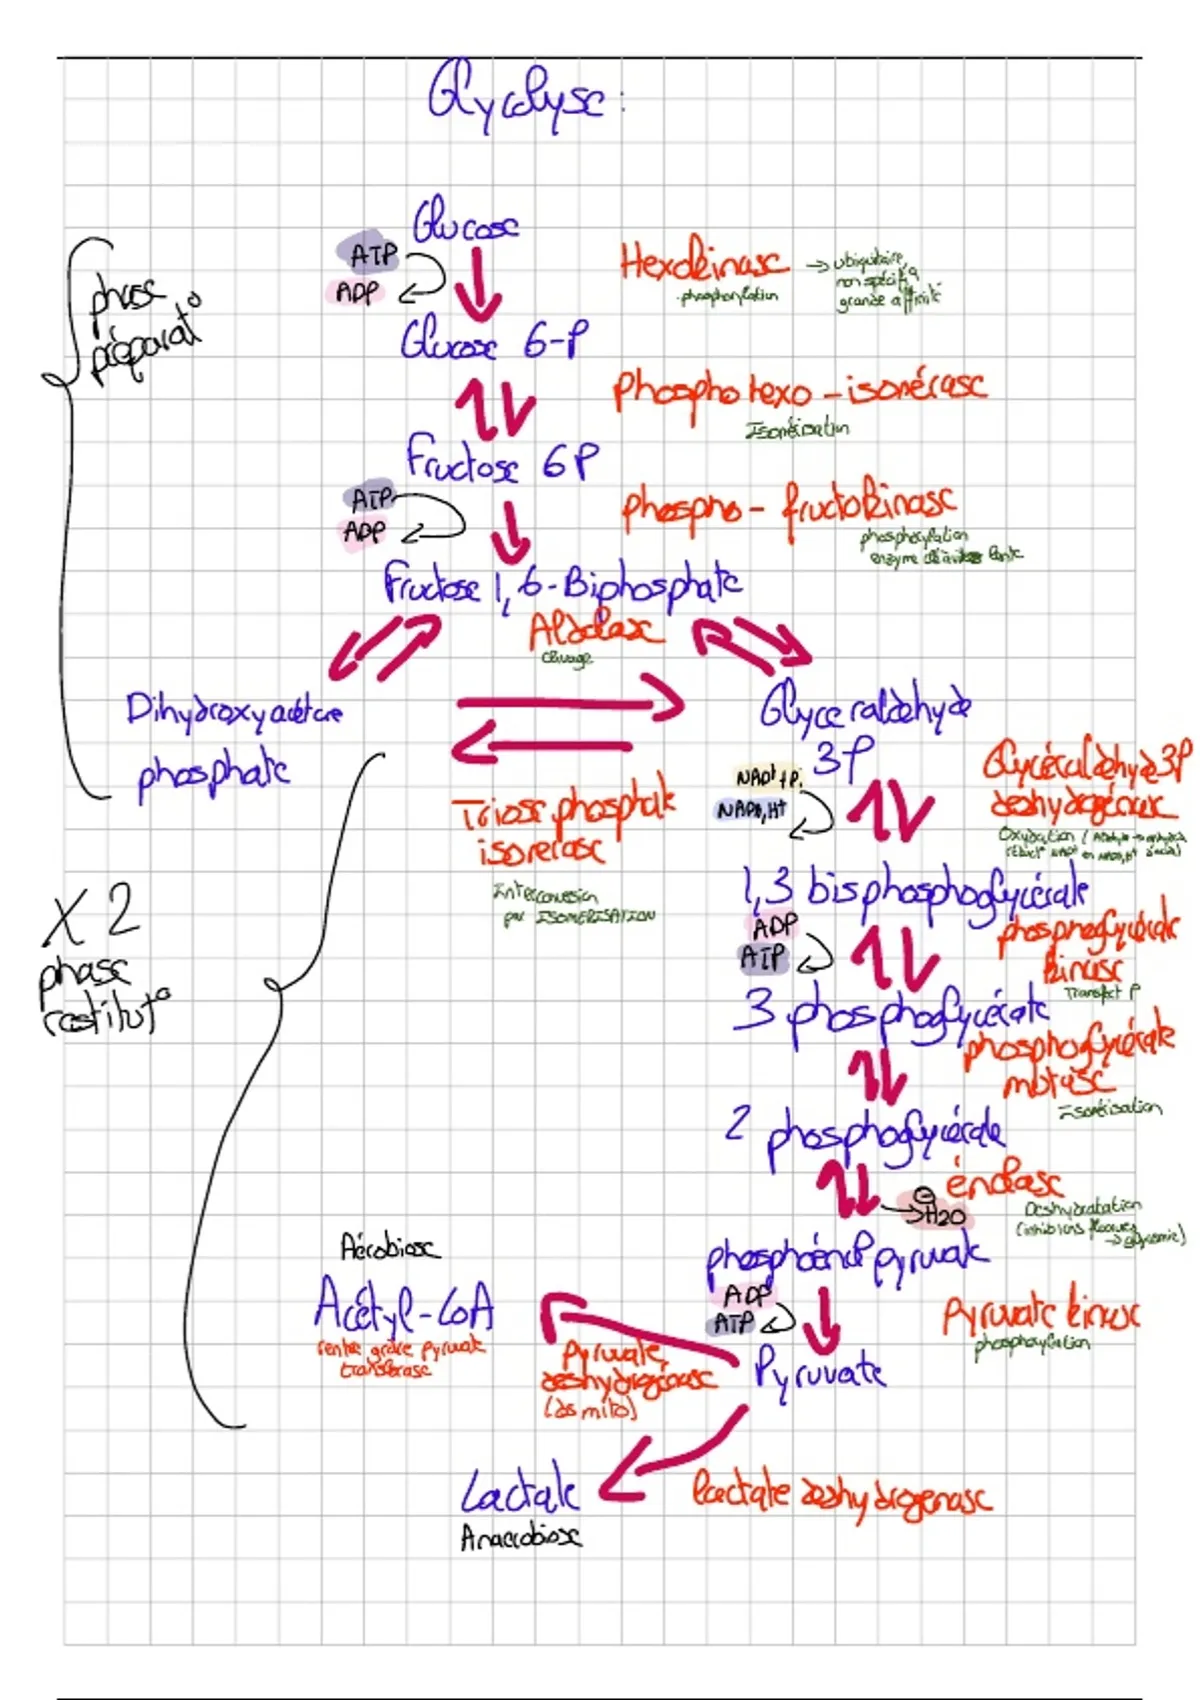 Glycolyse :
Glucose
ATP
ADP
Hexokinase → ubiquitaire,
non spécifiq
grande affinité
phosphorylation
phase
préparat°
Glucose 6-P
phosphohexo-isomérase
Isomérisation
Fructose 6P
ATP
ADP
phospho-fructokinase
phosphorylation
enzyme
Fructose 1,6-Biphosphate
Aldolase
Clivage
Dihydroxyacétone
phosphate
Glyceraldéhyde
3-P
Triose phosphate
isomerase
Interconversion
par ISOMERISATION
NAD+ + Pi
NADH,H+
Glycéraldéhyde 3P
deshydrogénase
Oxydation
1,3 bisphosphoglycérate
ADP
ATP
phosphoglycérate
kinase
Transfert P
X 2
phase
restitut°
3 phosphoglycérate
phosphoglycérate
mutase
Isomérisation
2 phosphoglycérate
énolase
⊖
H2O
Deshydratation
(inhib ions fluorures
→ glycémie)
phosphoénol pyruvate
ADP
ATP
Pyruvate kinase
phosphorylation
Pyruvate
Aérobiose
Acétyl-CoA
rentre grâce pyruvate
transferase
Pyruvate
deshydrogénase
(ds mito)
Lactate
Anaerobiose
lactate deshydrogenase